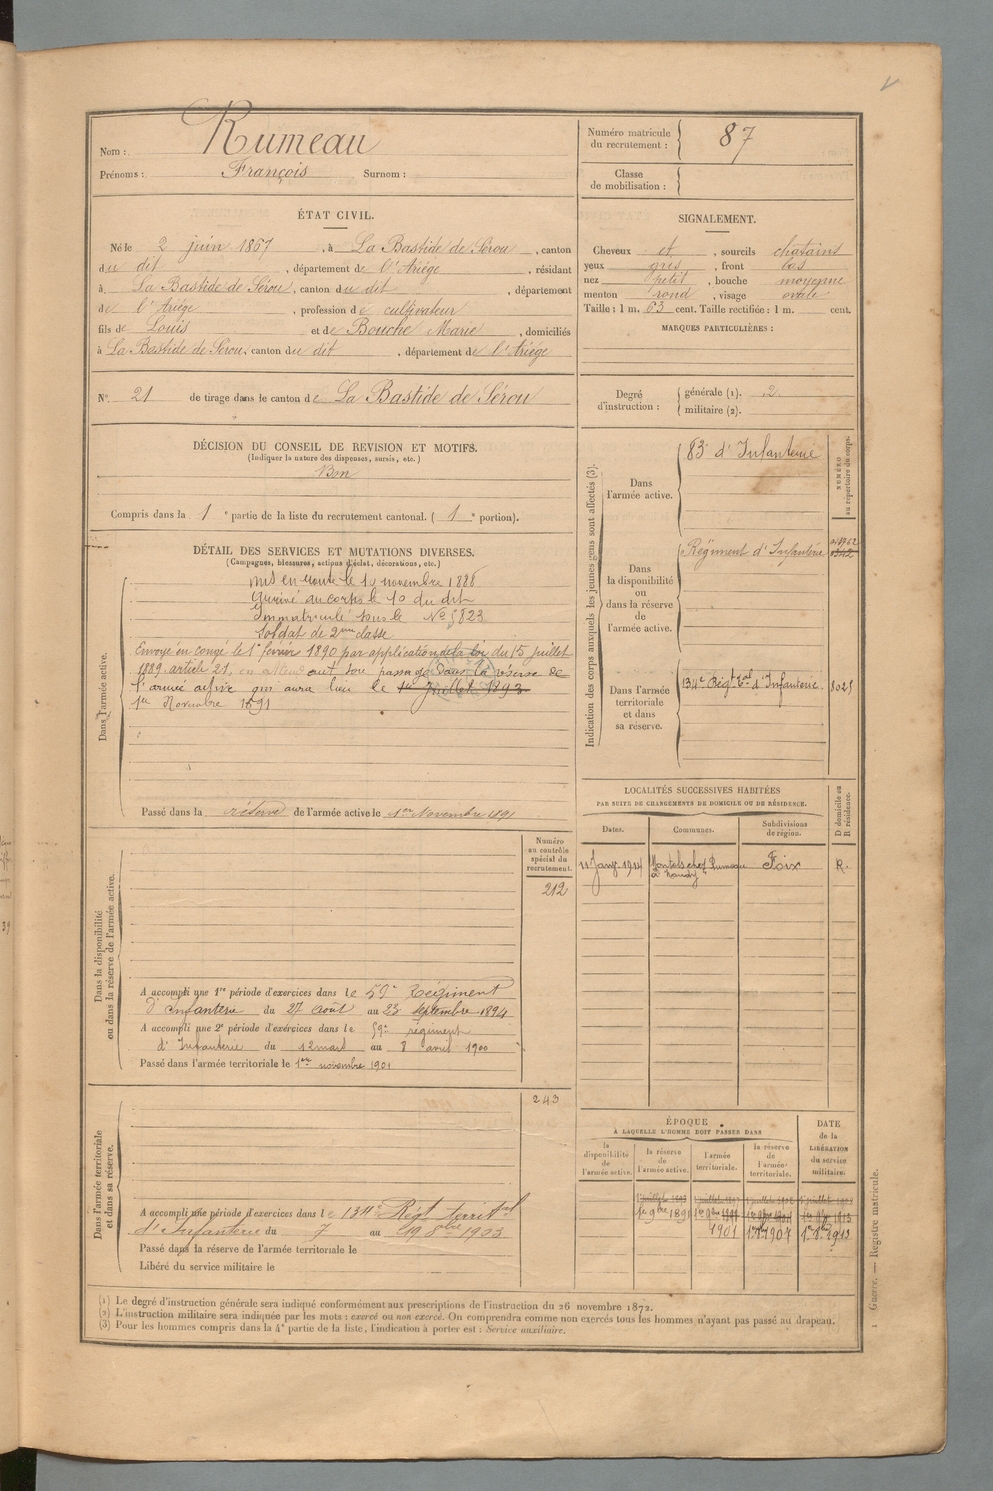 Nom : Rumeau
Prénoms : François Surnom :
Numéro matricule du recrutement : 87
Classe de mobilisation :
ÉTAT CIVIL.
Né le 2 juin 1867, à La Bastide de Sérou, canton
du dit, département de l'Ariège, résidant
à La Bastide de Sérou, canton du dit, département
de l'Ariège, profession de cultivateur
fils de Louis et de Bouche Marie, domiciliés
à La Bastide de Sérou, canton du dit, département de l'Ariège
N° 21 de tirage dans le canton de La Bastide de Sérou
SIGNALEMENT.
Cheveux et, sourcils chatains
yeux gris, front bas
nez petit, bouche moyenne
menton rond, visage ovale
Taille : 1 m. 63 cent. Taille rectifiée : 1 m. cent.
MARQUES PARTICULIÈRES :
Degré d'instruction : générale (1). 2
militaire (2).
DÉCISION DU CONSEIL DE REVISION ET MOTIFS.
(Indiquer la nature des dispenses, sursis, etc.)
Bon
Compris dans la 1e partie de la liste du recrutement cantonal. (1e portion).
DÉTAIL DES SERVICES ET MUTATIONS DIVERSES.
(Campagnes, blessures, actions d'éclat, décorations, etc.)
Dans l'armée active.
Mis en route le 10 novembre 1888
Arrivé au corps le 10 du dit
Immatriculé sous le N° 5823
Soldat de 2me classe
Envoyé en congé le 1er février 1890 par application de la loi du 15 juillet
1889 article 21, en attendant son passage dans la réserve de
l'armée active qui aura lieu le 1er Juillet 1893
1er Novembre 1891
Passé dans la réserve de l'armée active le 1er Novembre 1891
Indication des corps auxquels les jeunes gens sont affectés (3).
NUMÉRO au répertoire du corps.
Dans l'armée active.
83e d'Infanterie
Dans la disponibilité ou dans la réserve de l'armée active.
Régiment d'Infanterie
Dans l'armée territoriale et dans sa réserve.
134e Régt Tal d'Infanterie.
LOCALITÉS SUCCESSIVES HABITÉES
PAR SUITE DE CHANGEMENTS DE DOMICILE OU DE RÉSIDENCE.
D domicile ou R résidence.
Dates. Communes. Subdivisions de région.
11 Janv. 1914 Montels chez Rumeau Foix R.
Dans la disponibilité ou dans la réserve de l'armée active.
Numéro au contrôle spécial du recrutement.
212
A accompli une 1re période d'exercices dans le 59e Régiment
d'Infanterie du 27 Août au 23 septembre 1894
A accompli une 2e période d'exércices dans le 59e régiment
d'Infanterie du 12 mars au 8 avril 1900
Passé dans l'armée territoriale le 1er novembre 1901
Dans l'armée territoriale et dans sa réserve.
243
A accompli une période d'exercices dans le 134e Régt territal
d'Infanterie du 7 au 19 8bre 1903
Passé dans la réserve de l'armée territoriale le
Libéré du service militaire le
ÉPOQUE
À LAQUELLE L'HOMME DOIT PASSER DANS
la disponibilité de l'armée active.
la réserve de l'armée active.
l'armée territoriale.
la réserve de l'armée territoriale.
DATE de la LIBÉRATION du service militaire.
1er 9bre 1891
1901
(1) Le degré d'instruction générale sera indiqué conformément aux prescriptions de l'instruction du 26 novembre 1872.
(2) L'instruction militaire sera indiquée par les mots : exercé ou non exercé. On comprendra comme non exercés tous les hommes n'ayant pas passé au drapeau.
(3) Pour les hommes compris dans la 4e partie de la liste, l'indication à porter est : Service auxiliaire.
Guerre. — Registre matricule.